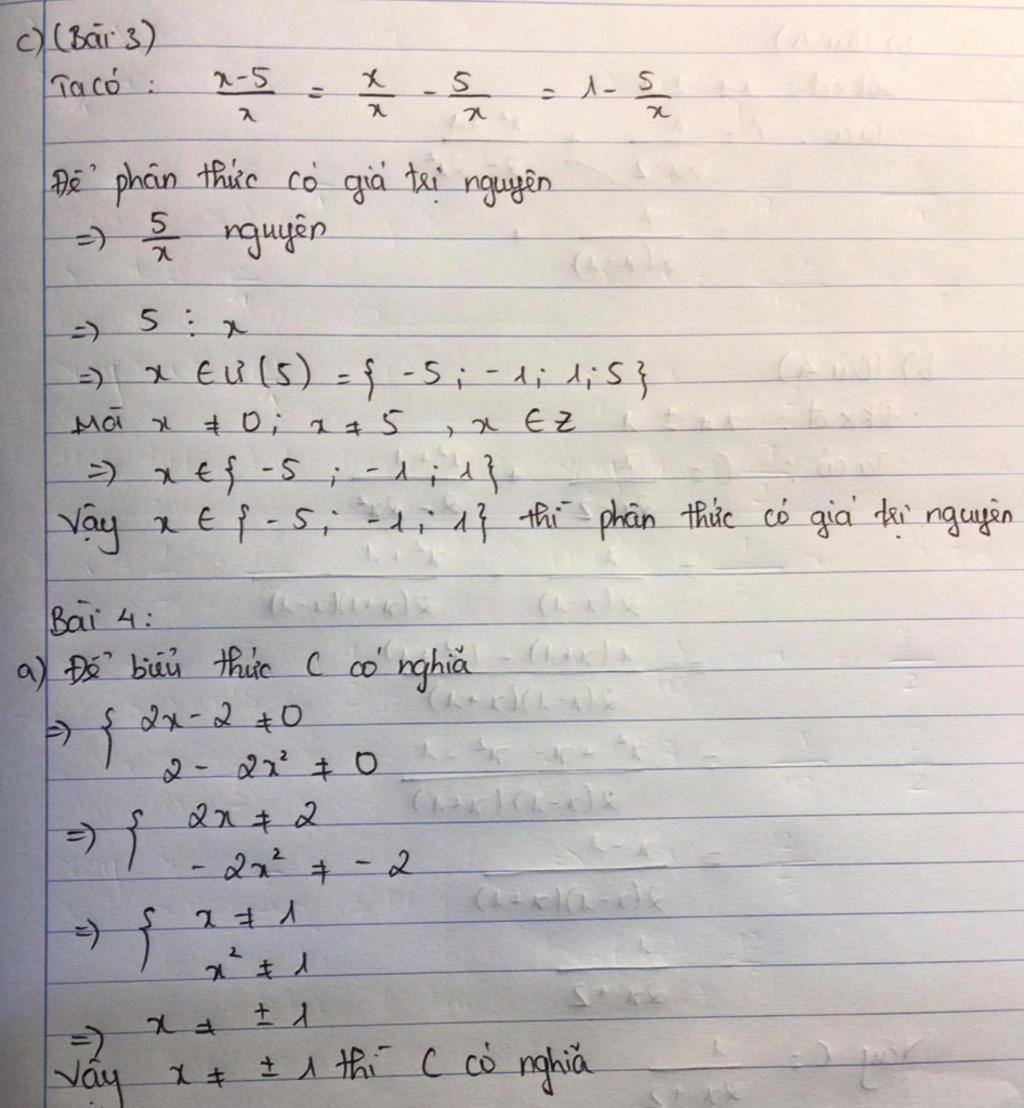 c) (Bài 3)
Ta có : x-5/x = x/x - 5/x = 1 - 5/x
Để phân thức có giá trị nguyên
=> 5/x nguyên
=> 5 ⋮ x
=> x ∈ Ư(5) = { -5 ; -1 ; 1 ; 5 }
Mà x ≠ 0 ; x ≠ 5 , x ∈ Z
=> x ∈ { -5 ; -1 ; 1 }
Vậy x ∈ { -5 ; -1 ; 1 } thì phân thức có giá trị nguyên
Bài 4 :
a) Để biểu thức C có nghiã
=> { 2x - 2 ≠ 0
2 - 2x² ≠ 0
=> { 2x ≠ 2
- 2x² ≠ - 2
=> { x ≠ 1
x² ≠ 1
=> x ≠ ± 1
Vậy x ≠ ± 1 thì C có nghiã